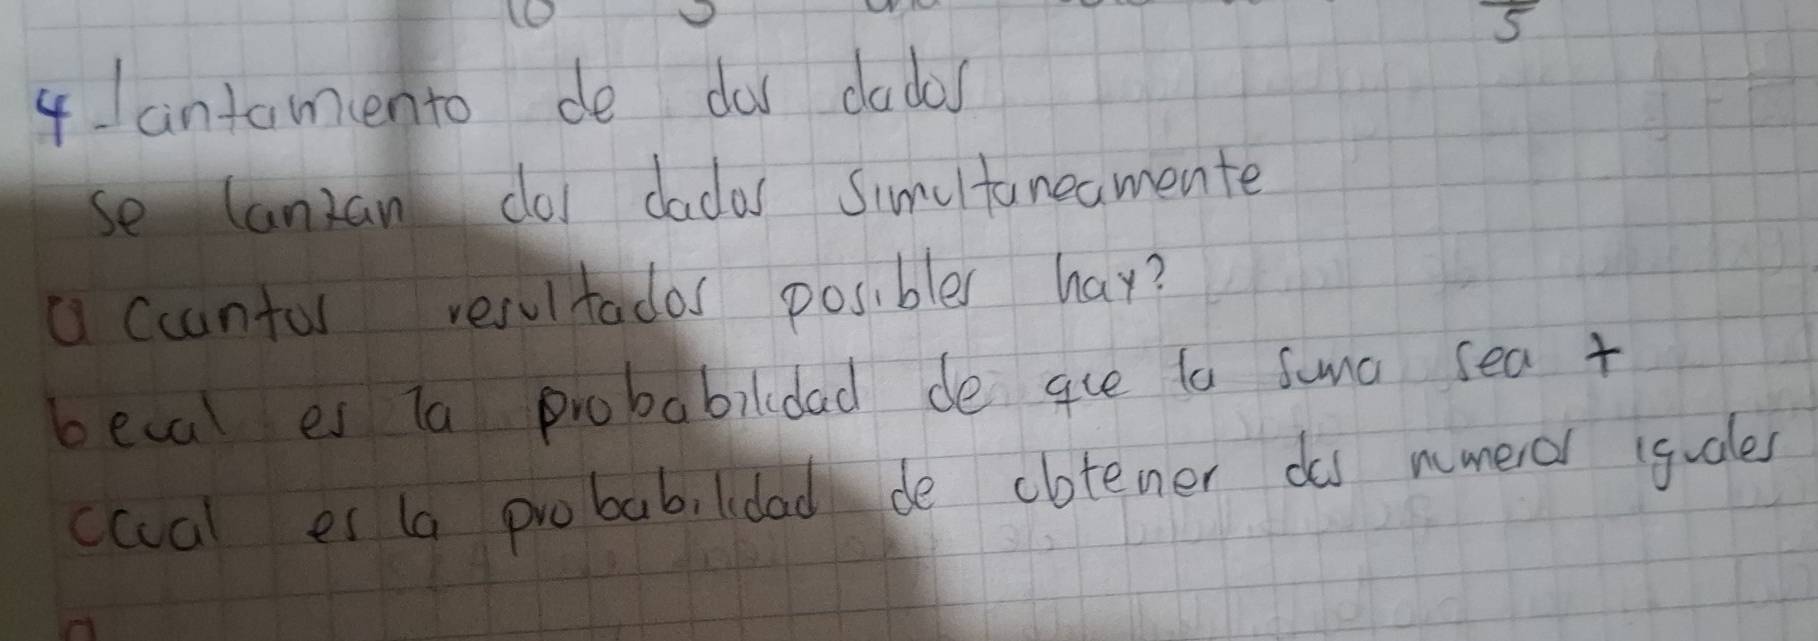 10 5 5
4 Lantamiento de dos dados
se lanzan dos dados simultaneamente
a Cuantos resultados posibles hay?
b cual es la probabilidad de que la suma sea 7
c cual es la probabilidad de obtener dos numeros iguales